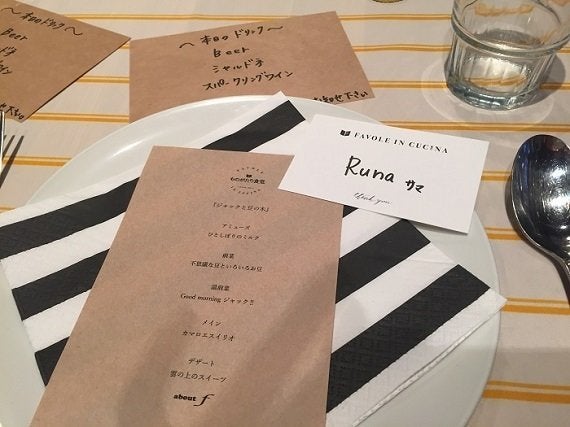 〜本日のドリンク〜
Beer
〜本日のドリンク〜
Beer
シャルドネ
スパークリングワイン
お知らせ下さい
FAVOLE IN CUCINA
Runa サマ
thank you
ものがたり食堂
『ジャックと豆の木』
アミューズ
ひとしぼりのミルク
前菜
不思議な豆といろいろお豆
温前菜
Good morning ジャック!!
メイン
カマロエスイリオ
デザート
雲の上のスイーツ
about f